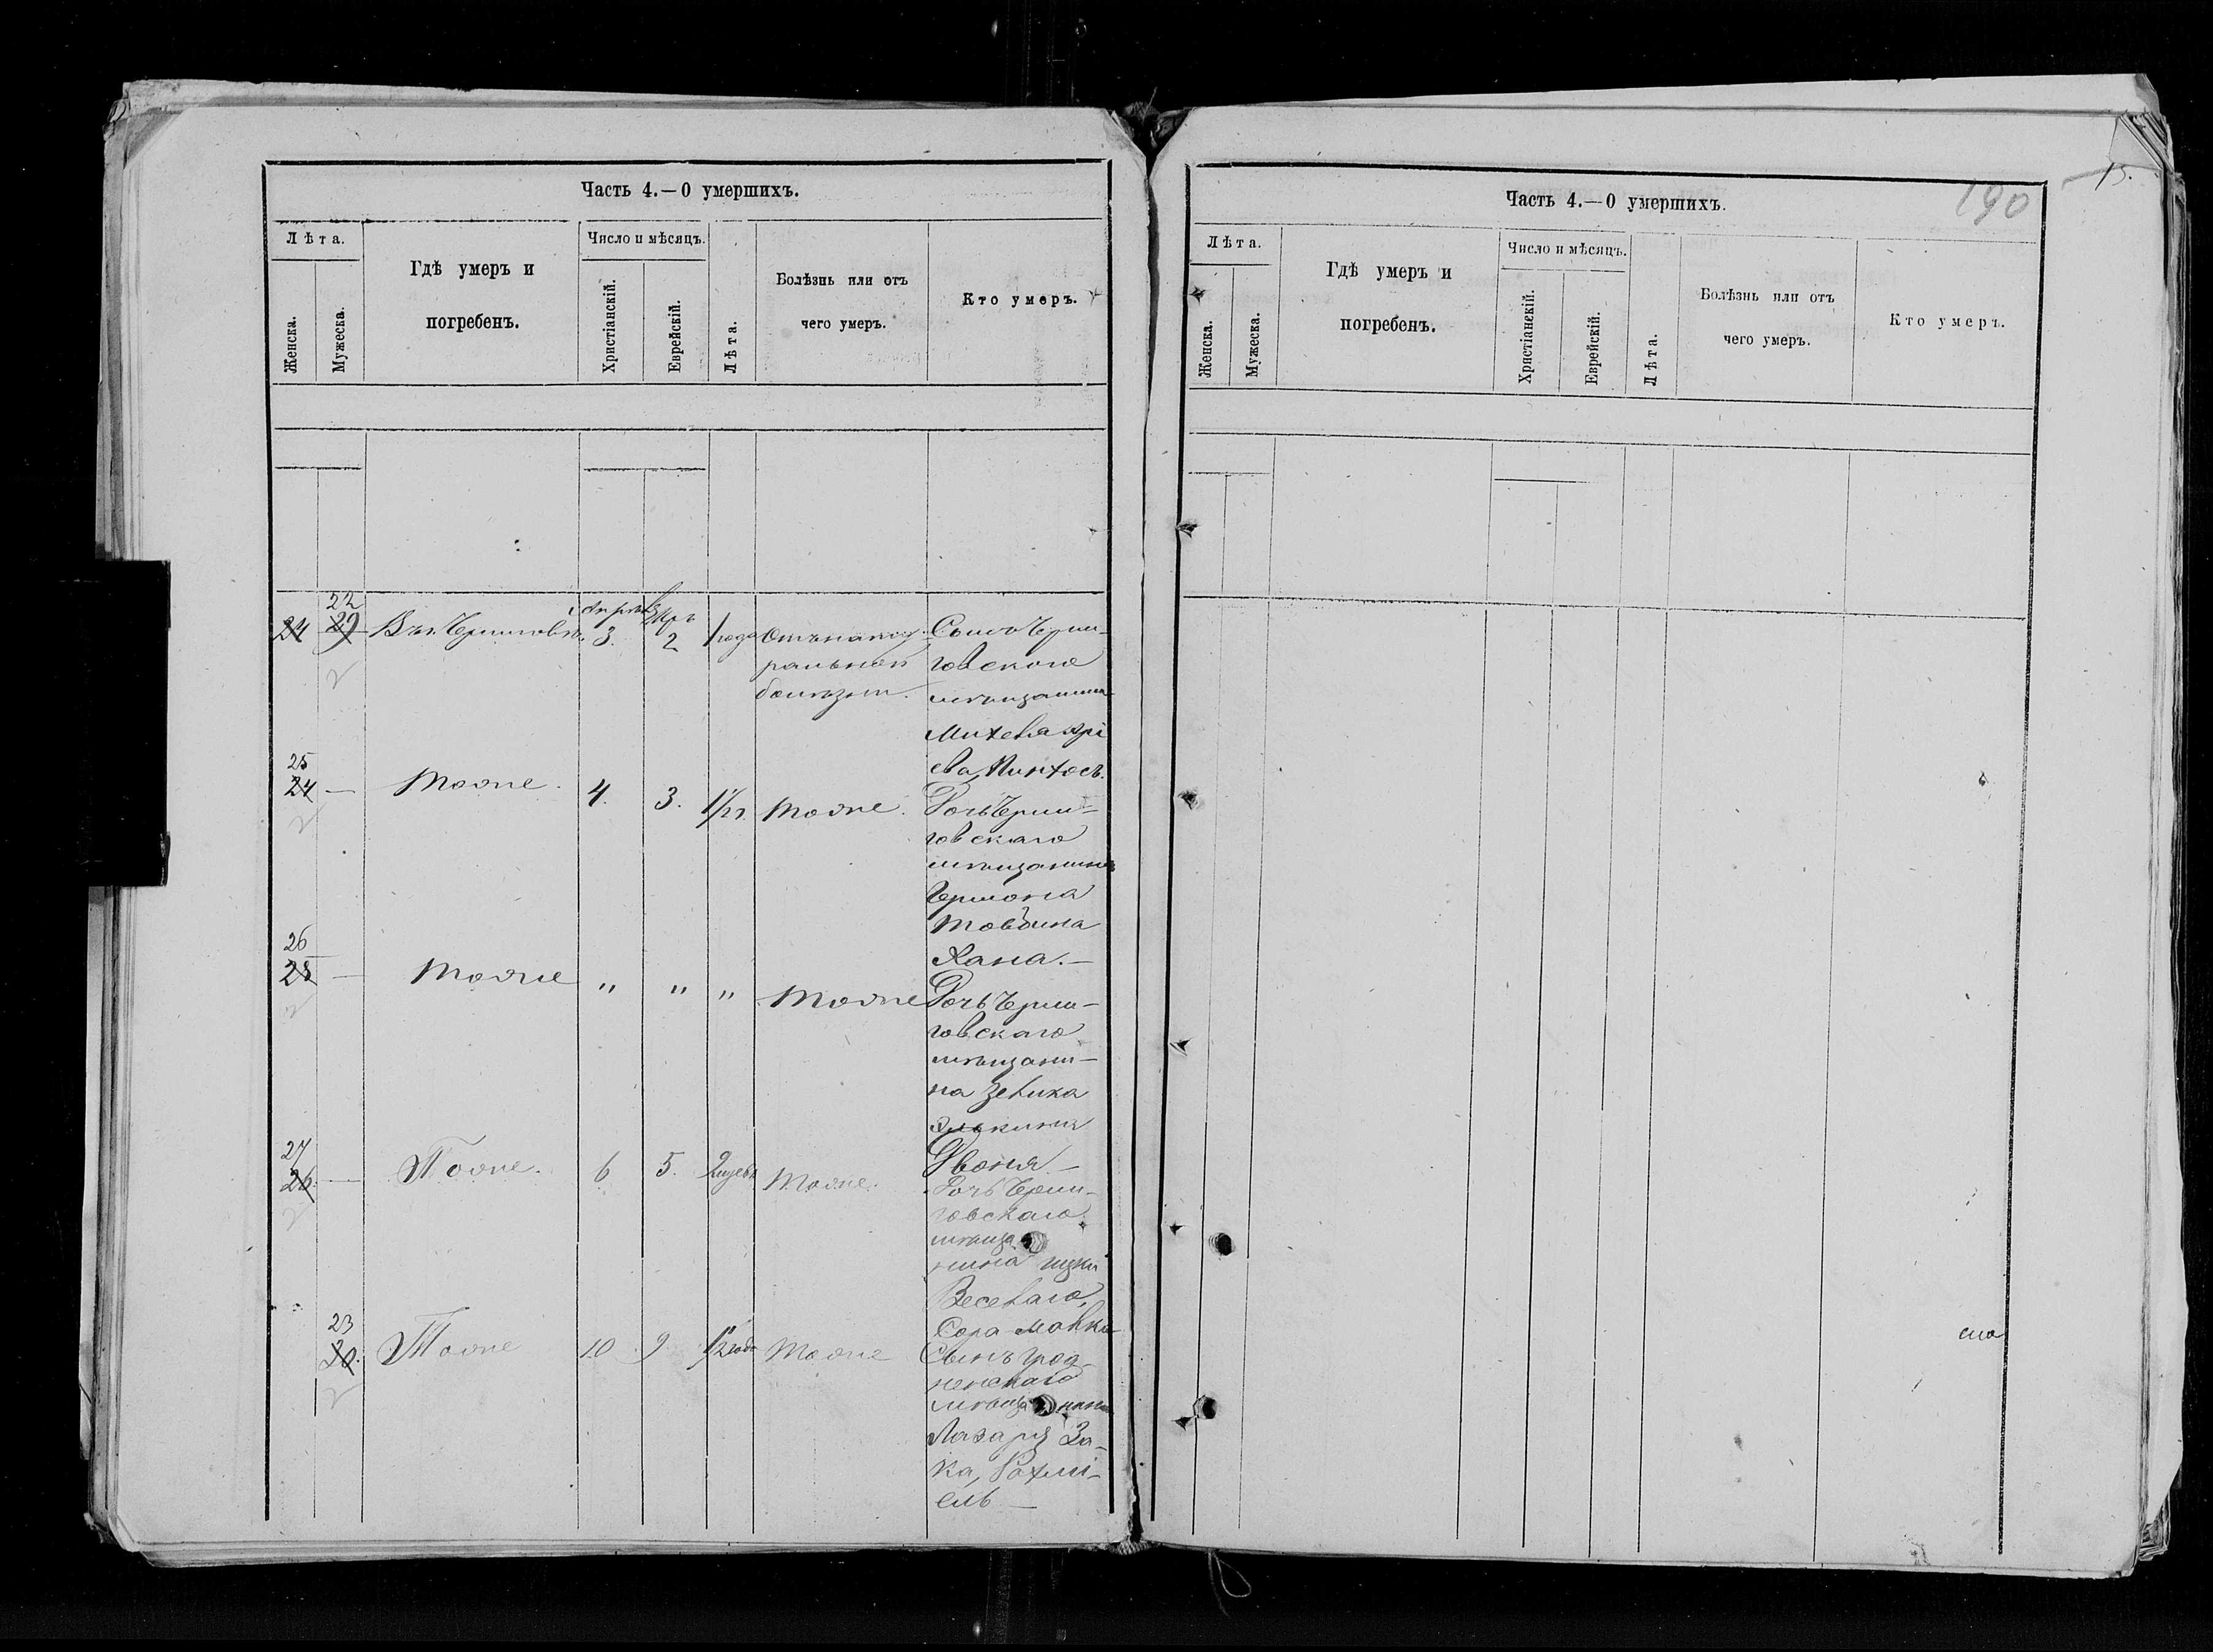 Часть 4.—О умершихъ.
Лѣта.
Женска.
Мужеска.
Гдѣ умеръ и
погребенъ.
Число и мѣсяцъ.
Христіанскій.
Еврейскій.
Лѣта.
Болѣзнь или отъ
чего умеръ.
Кто умеръ.
22
24 29 Въ г. Черниговѣ.
3. 2 1 года Отъ нату-
ральной
болѣзни.
Сынъ Черни-
говскаго
мѣщанина
25
24 — Тоже. 4. 3. Тоже.
Дочь Черни-
говскаго
мѣщанина
Хана.—
26
25 — Тоже " " " Тоже
Дочь Черни-
говскаго
мѣщани-
на Зелика
Элькина
Двоня.—
27
26. — Тоже. 6 5. 2 Тоже.
Дочь Черни-
говскаго
мѣща
нина Ицки
Веселаго,
Сора-Малка
23
30. Тоже 10 9 Тоже
Сынъ Грод-
ненскаго
мѣщанина
Лазаря За-
ка, Рахми-
ель —
Часть 4.—О умершихъ.
190
15.
Лѣта.
Женска.
Мужеска.
Гдѣ умеръ и
погребенъ.
Число и мѣсяцъ.
Христіанскій.
Еврейскій.
Лѣта.
Болѣзнь или отъ
чего умеръ.
Кто умеръ.